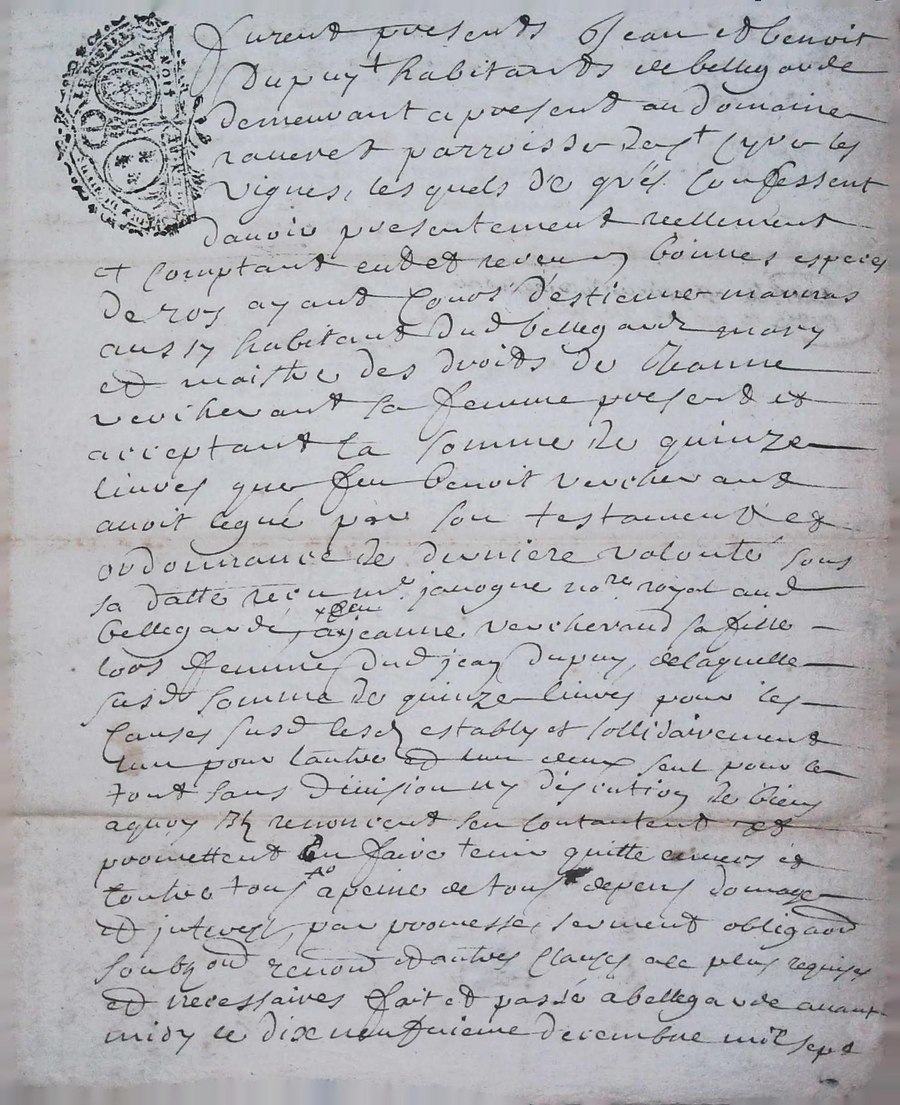 furent presents Jean et benoit
Dupuy + habitants de bellegarde
demeurant a present au domaine
raveret parroisse de st Cyr les
vignes, lesquels de gré Confessent
davoir presentement reellement
et Comptant eut et receu en bonnes especes
de roy ayant Cours d'estienne
habitant dud bellegarde mary
et maistre des droits de Jeanne
vercherant sa femme present et
acceptant la somme de quinze
livres que feu benoit vercherand
avoit legué par son testament et
ordonnance de derniere volonté sous
sa datte receu me javogne nore royal aud
bellegarde, a jeanne vercherand sa fille
lors femme dud jean Dupuy, delaquelle
susd somme de quinze livres pour les
Causes susd lesd establys et sollidairement
lun pour lautre et lun deux seul pour le
tout sans division ny discution de biens
aquoy ils renoncent sen contantent et
promettent En faire tenir quitte envers et
Contre tous a peine de tous depens domage
et interest, par promesse, serment obligaon
renon et autres Clauses plus requises
et necessaires fait et passé a bellegarde avant
midy le dix neufvieme decembre mil sept